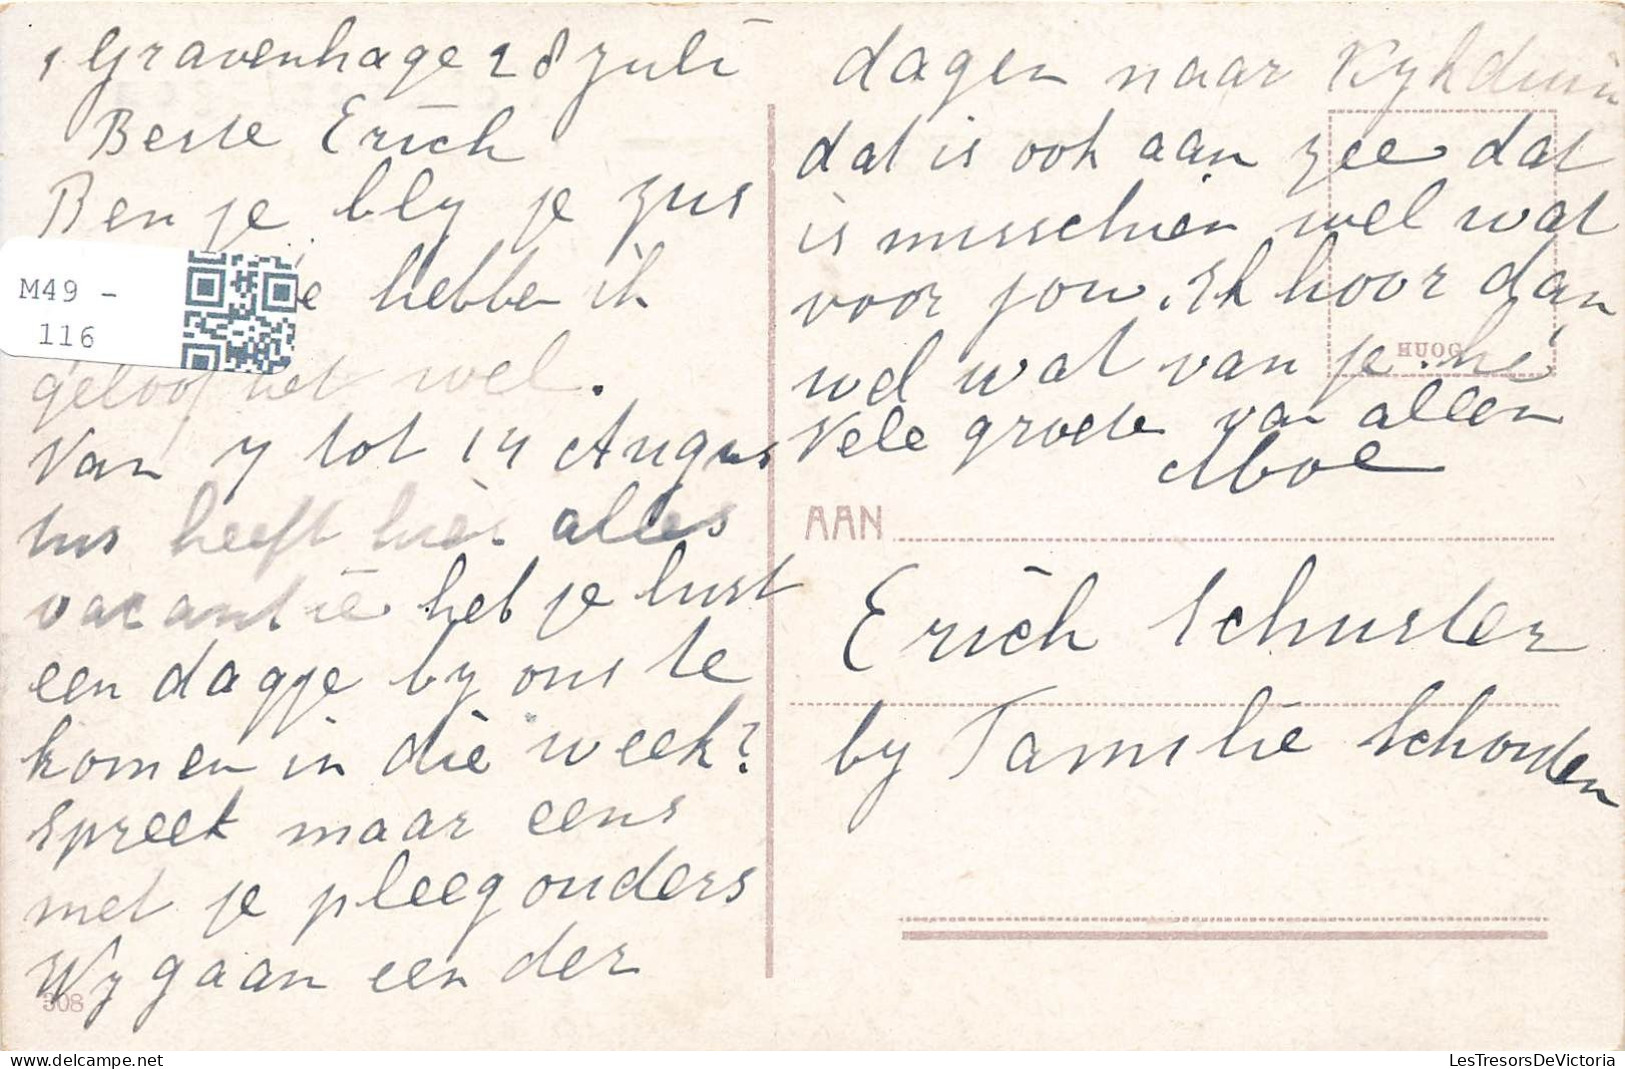 's Gravenhage 28 Juli
Beste Erich
Ben je bly je zus
te hebben ik
geloof het wel.
Van 7 tot 14 Augus
tus heeft hier alles
vacantie heb je lust
een dagje by ons te
komen in die week?
Spreek maar eens
met je pleegouders
Wy gaan een der
308
dagen naar Kykduin
dat is ook aan zee dat
is misschien wel wat
voor jou. Ik hoor dan
wel wat van je. hé
Vele groete van allen
AAN
Erich Schuster
by Familie Schouden
HUOG
M49 -
116
LesTresorsDeVictoria